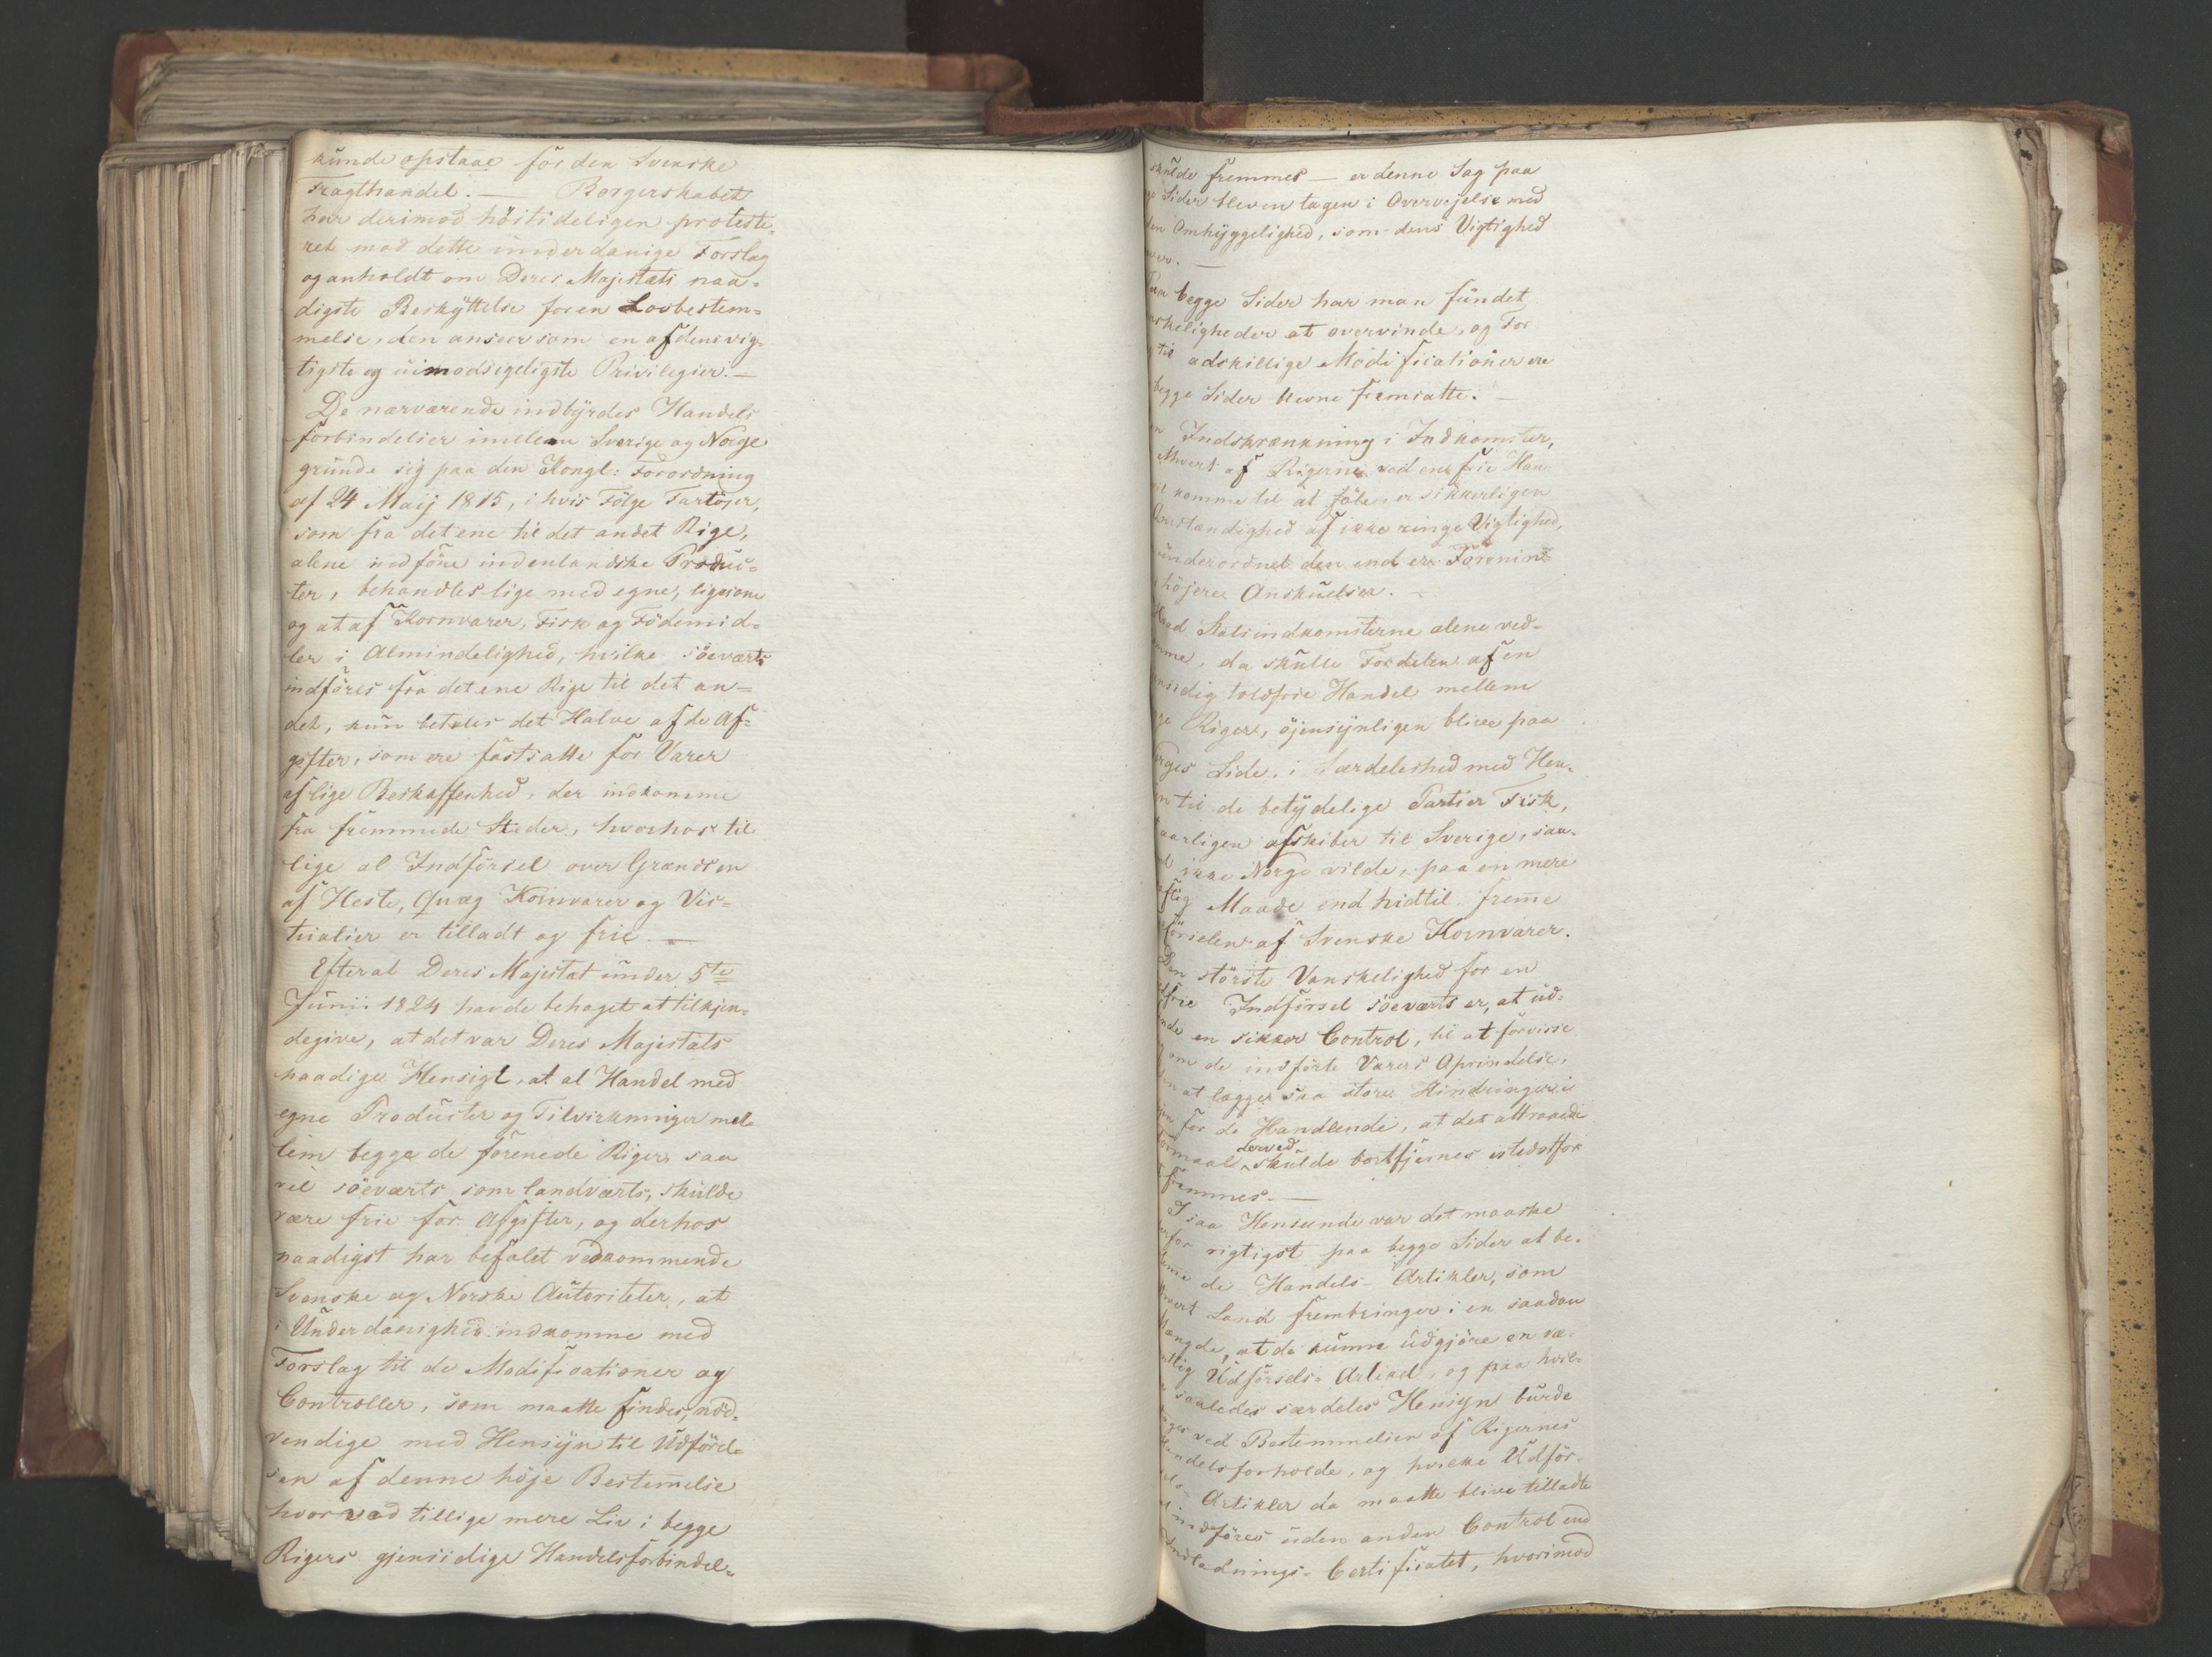 kunde opstaae for den Svenske
Fragthandel. — Borgerskabet
har derimod höitideligen proteste-
ret mod dette underdanige Forslag
og anholdt om Deres Majestæts naa-
digste Beskyttelse for en Lovbestem-
melse, den anseer som en af dens vig-
tigste og uimodsigeligste Privilegier. —
De nærværende indbyrdes Handels
forbindelser imellem Sverige og Norge
grunde sig paa den Kongl: Forordning
af 24 Maij 1815, i hvis Fölge Fartöjer,
som fra det ene til det andet Rige,
alene indföre indenlandske Produc-
ter, behandles lige med egne, ligesom
og at af Kornvarer, Fisk og Födemid-
ler i Almindelighed, hvilke söeværts
indföres fra det ene Rige til det an-
det, kun betales det Halve af de Af-
gifter, som ere fastsatte for Varer
af lige Beskaffenhed, der indkomme
fra fremmede Steder, hvorhos til
lige al Indförsel over Grændsen
af Heste, Qvæg Kornvarer og Vic-
tualier er tilladt og frie. —
Efter at Deres Majestæt under 5te
Junii 1824 havde behaget at tilkjen-
degive, at det var Deres Majestæts
naadige Hensigt, at al Handel med
egne Producter og Tilvirkninger mel-
lem begge de forenede Riger, saa
vel söeværts som landværts, skulde
være frie for Afgifter, og derhos
naadigst har befalet vedkommende
Svenske og Norske Autoriteter, at
i Underdanighed indkomme med
Forslag til de Modificationer og
Controller, som maatte findes nöd-
vendige med Hensyn til Udförel-
sen af denne höje Bestemelse
hvorved tillige mere Liv i begge
Rigers gjensidige Handelsforbindel-
skulde fremmes — er denne Sag paa
Sider bleven tagen i Overvejelse med
den Omhyggelighed, som dens Vigtighed
Paa begge Sider har man fundet
at overvinde, og For
til adskillige Modificationer ere
begge Sider blevne fremsatte. —
Indskrænkning i Indkomster,
ethvert af Rigerne ved en frie Han-
komme til at föle, er sikkerligen
Omstændighed af ikke ringe Vigtighed,
underordnet den end er Forenin-
höjere Anskuelser. —
Hvad Statsindkomsterne alene ved-
komme, da skulle Fordelen af en
toldfrie Handel mellem
Riger, öjensynligen blive paa
Norges Side, i Særdeleshed med Hen-
til de betydelige Partier Fisk,
aarligen afskiber til Sverige, saa-
ikke Norge vilde, paa en mere
Maade end hidtil freme
Indförselen af Svenske Kornvarer.
Den störste Vanskelighed for en
Indförsel söeværts er, at ud-
finde en sikker Control, til at forvisse
om de indförte Varers Oprindelse,
at lægge saa store Hindringer i
for de Handlende, at det attraaede
Formaal derved skulde bortfjernes istedetfor
fremmes. —
I saa Henseende var det maaske
rigtigst paa begge Sider at be-
de Handels-Artikler, som
hvert Land frembringer i en saadan
Mængde, at de kunne udgjöre en væ-
sentlig Udförsels-Artikel, og paa hvil-
saaledes særdeles Hensyn burde
tages ved Bestemmelsen af Rigernes
Handelsforholde, og hvilke Udför-
sels-Artikler da maatte blive tilladte
indföres uden anden Control end
Indladnings-Certificatet, hvorimod